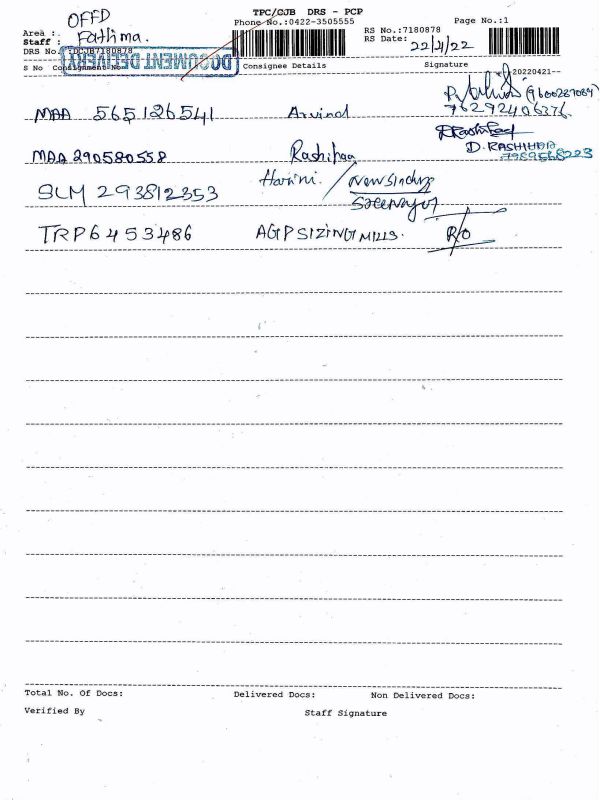 TPC/CJB DRS - PCP
Phone No.:0422-3505555 Page No.:1
Area : OFFD
RS No.:7180878
Staff : Fathima.
RS Date: 22/4/22
DRS No. :DCJB7180878
DOCUMENT DELIVERY
S No Consignment No Consignee Details Signature
20220421--
MAA 565126541 Arvind
MAA 290580558 Rashihaa D. RASHIHAA
SLM 293812353 Harini.
TRP6453486 AGP SIZING MILLS. R/O
Total No. Of Docs: Delivered Docs: Non Delivered Docs:
Verified By Staff Signature